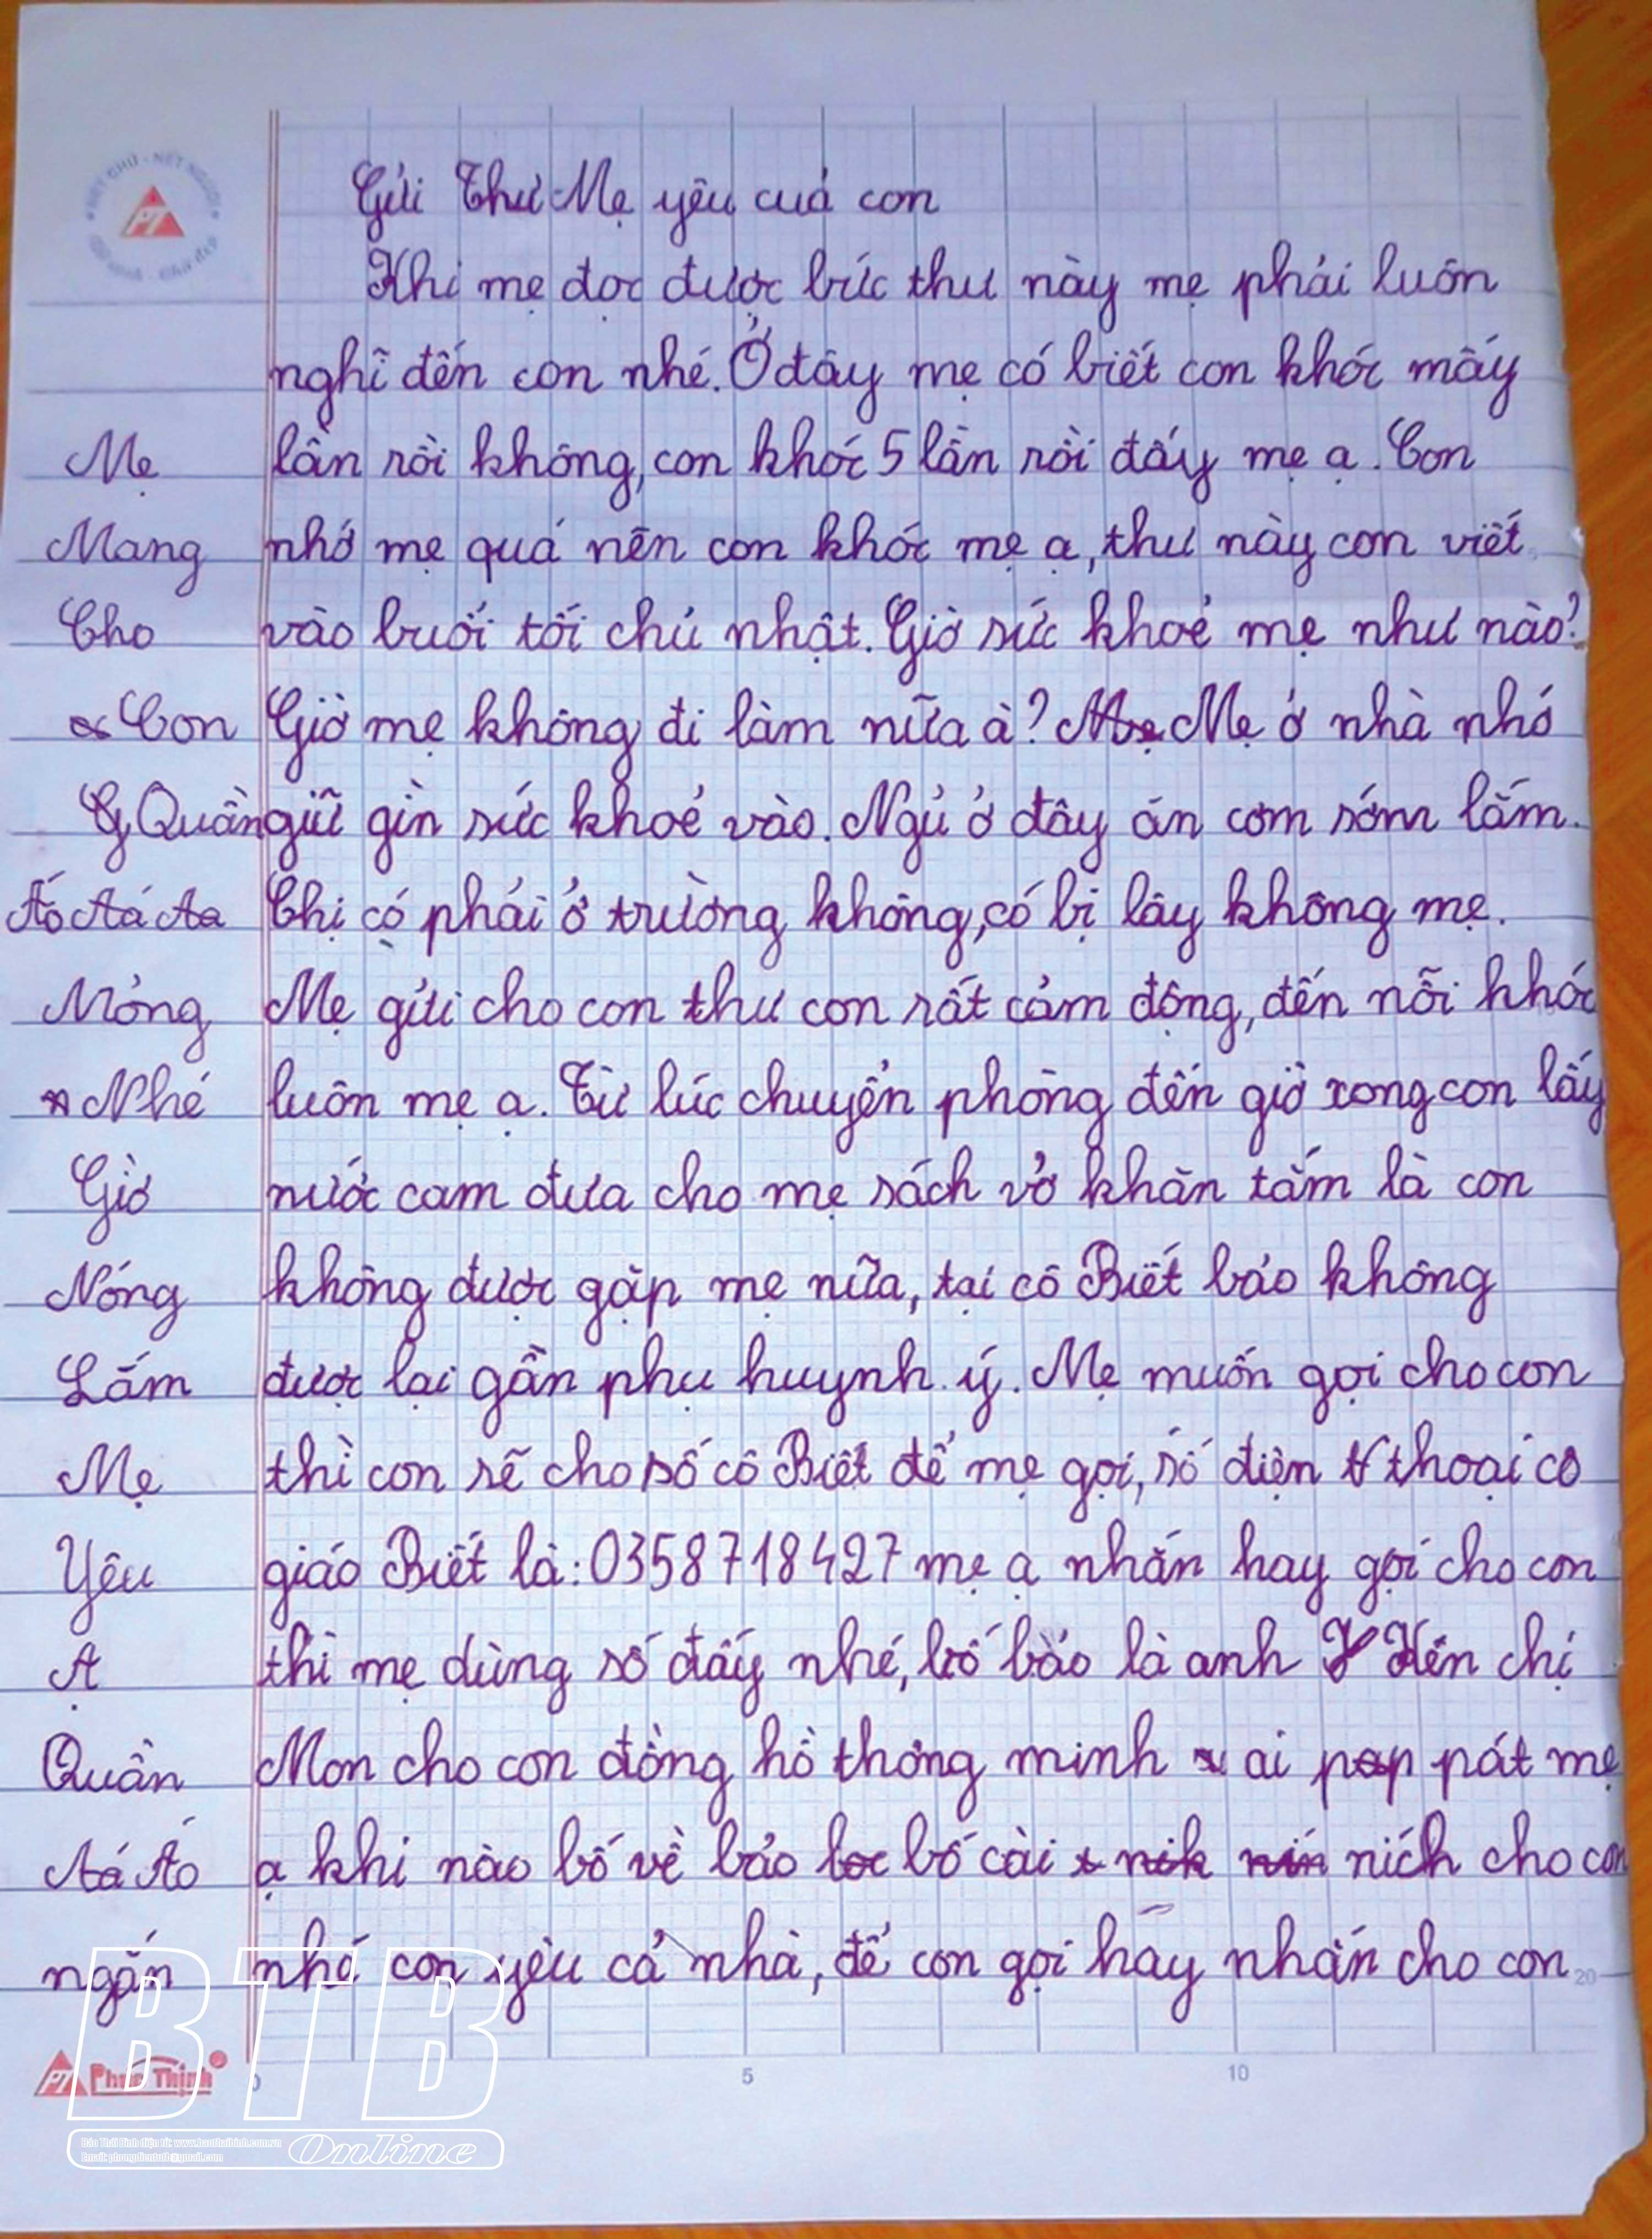 VIẾT CHỮ - NẾT NGƯỜI
PT
Gửi Thư Mẹ yêu của con
Khi mẹ đọc được bức thư này mẹ phải luôn
nghĩ đến con nhé. Ở đây mẹ có biết con khóc mấy
Mẹ lần rồi không, con khóc 5 lần rồi đấy mẹ ạ. Con
Mang nhớ mẹ quá nên con khóc mẹ ạ, thư này con viết
Cho vào buổi tối chủ nhật. Giờ sức khoẻ mẹ như nào?
Con Giờ mẹ không đi làm nữa à? Mẹ Mẹ ở nhà nhớ
Quần giữ gìn sức khoẻ vào. Ngủ ở đây ăn cơm sớm lắm.
Áo Aá Aa Chị có phải ở trường không, có bị lây không mẹ.
Mỏng Mẹ gửi cho con thư con rất cảm động, đến nỗi khóc
Nhé luôn mẹ ạ. Từ lúc chuyển phòng đến giờ xong con lấy
Giờ nước cam đưa cho mẹ sách vở khăn tắm là con
Nóng không được gặp mẹ nữa, tại cô Biết bảo không
Lắm được lại gần phụ huynh ý. Mẹ muốn gọi cho con
Mẹ thì con sẽ cho số cô Biết để mẹ gọi, số điện thoại cô
Yêu giáo Biết là: 0358718427 mẹ ạ nhắn hay gọi cho con
Ạ thì mẹ dùng số đấy nhé, bố bảo là anh Kiên chị
Quần Mon cho con đồng hồ thông minh ai pap pát mẹ
Aá Áo ạ khi nào bố về bảo bố cài nick cho con
ngắn nhé con yêu cả nhà, để con gọi hãy nhắn cho con
20
PT Phúc Thịnh
0 5 10
BTB
Online
Báo Thái Bình điện tử: www.baothaibinh.com.vn